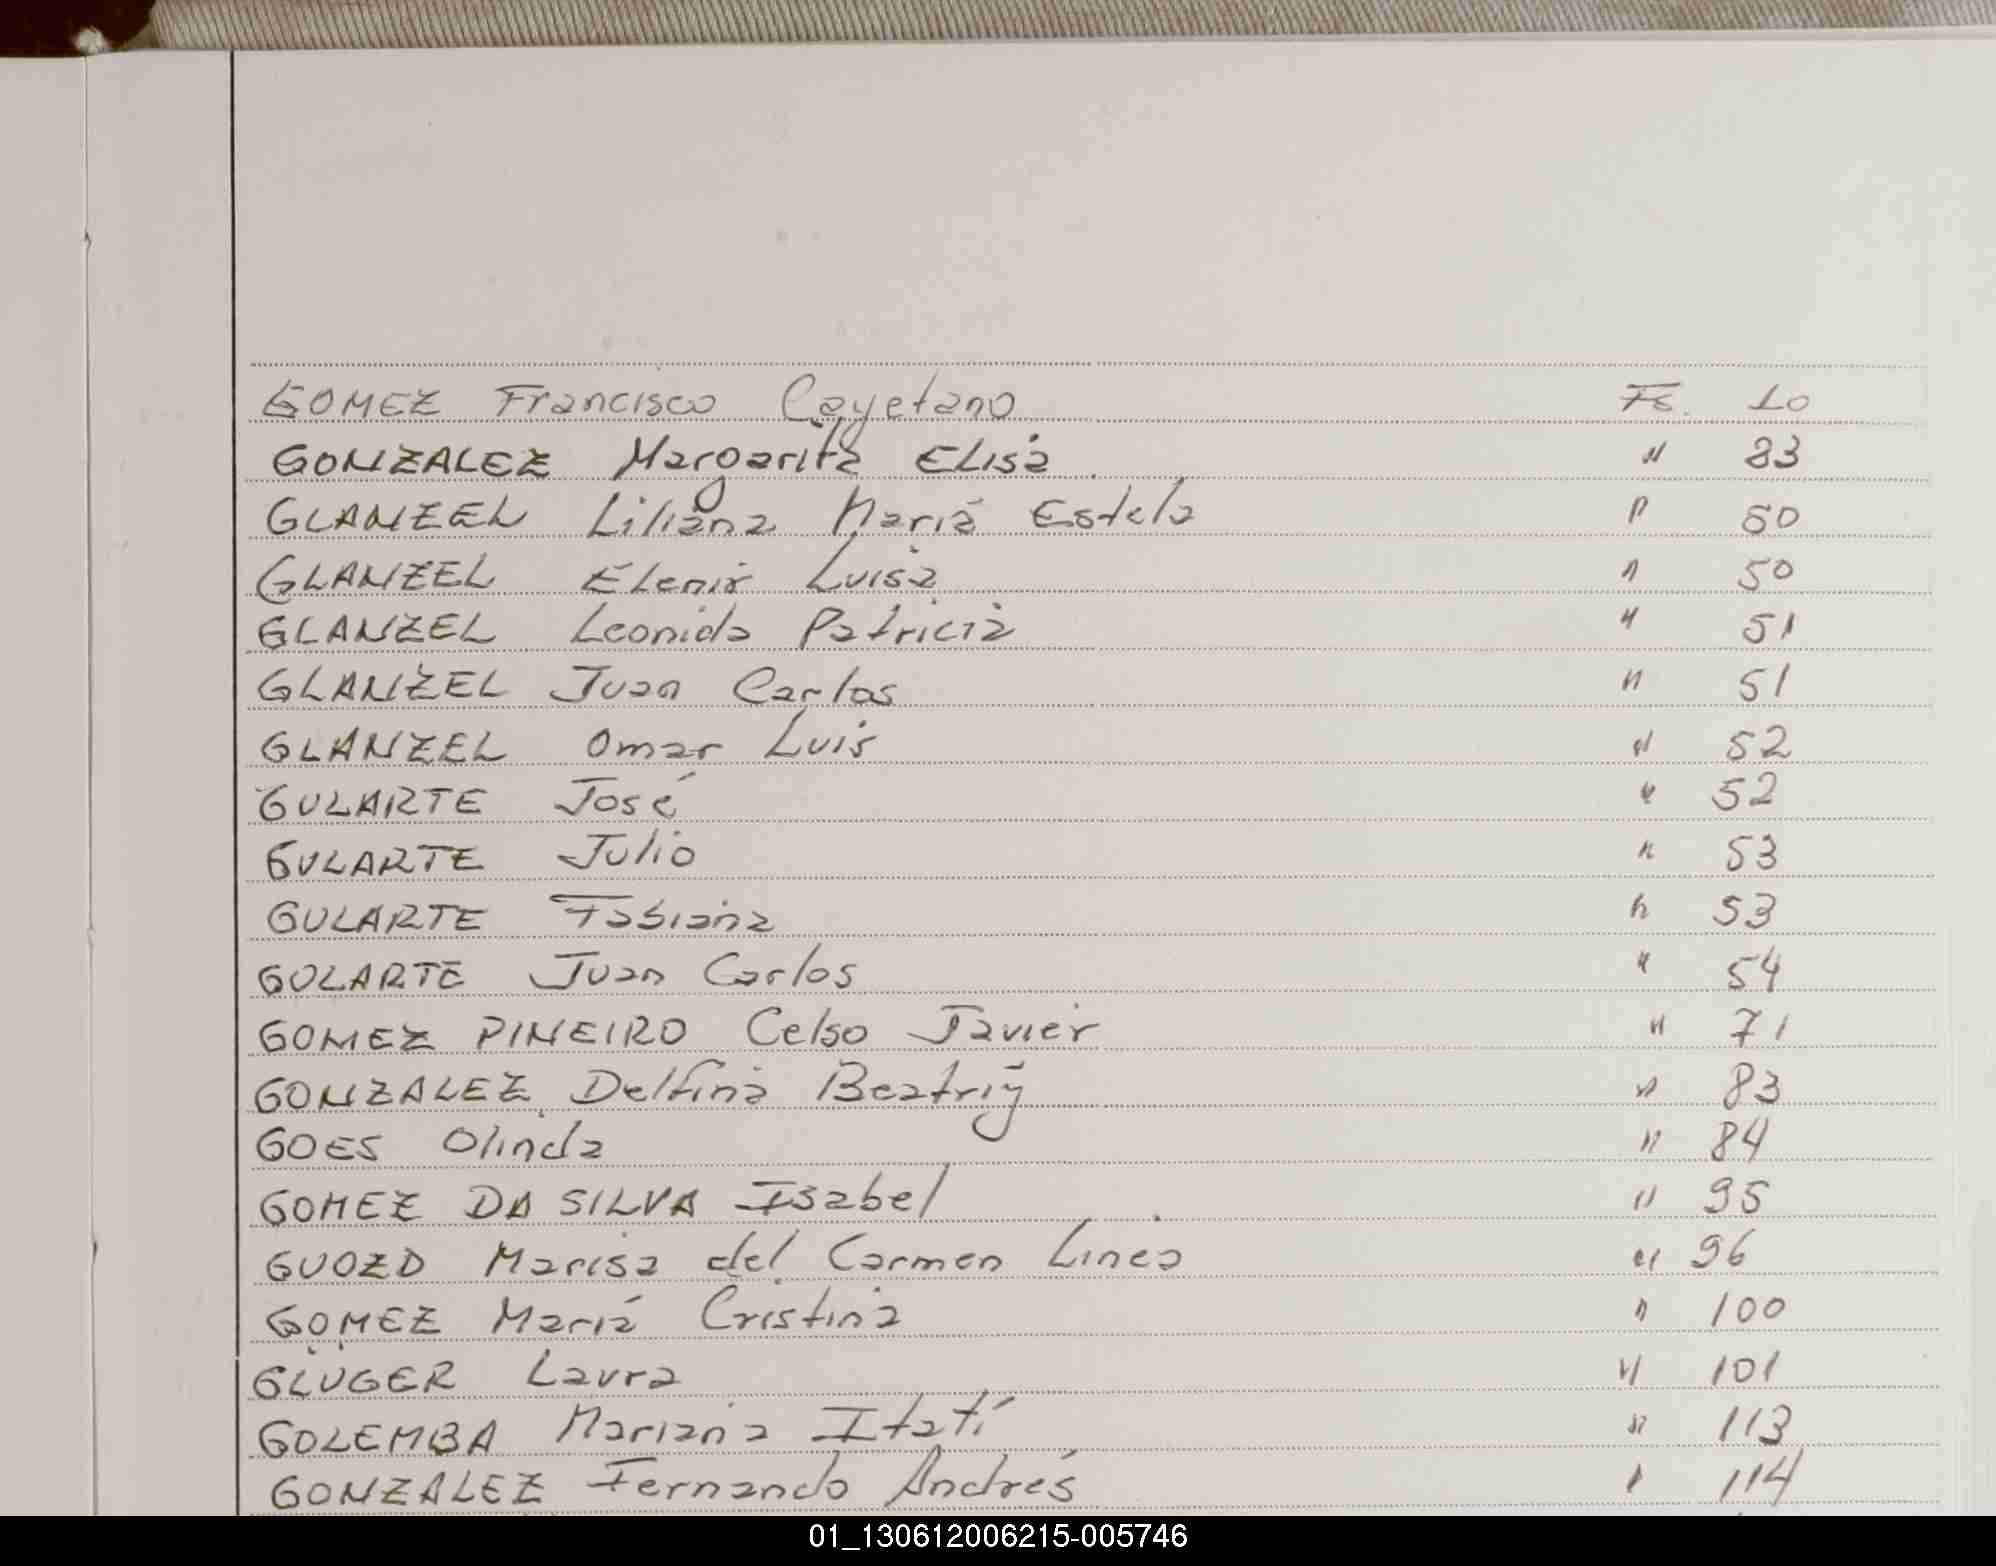 GOMEZ Francisco Cayetano Fs. 10
GONZALEZ Margarita Elisa " 83
GLANZEL Liliana Maria Estela " 50
GLANZEL Elenir Luisa " 50
GLANZEL Leonida Patricia " 51
GLANZEL Juan Carlos " 51
GLANZEL Omar Luis " 52
GULARTE José " 52
GULARTE Julio " 53
GULARTE Fabiana " 53
GULARTE Juan Carlos " 54
GOMEZ PINEIRO Celso Javier " 71
GONZALEZ Delfina Beatriz " 83
GOES Olinda " 84
GOMEZ DA SILVA Isabel " 95
GUOZD Marisa del Carmen Linea " 96
GOMEZ Maria Cristina " 100
GLÜGER Laura " 101
GOLEMBA Mariana Itatí " 113
GONZALEZ Fernando Andrés " 114
01_130612006215-005746